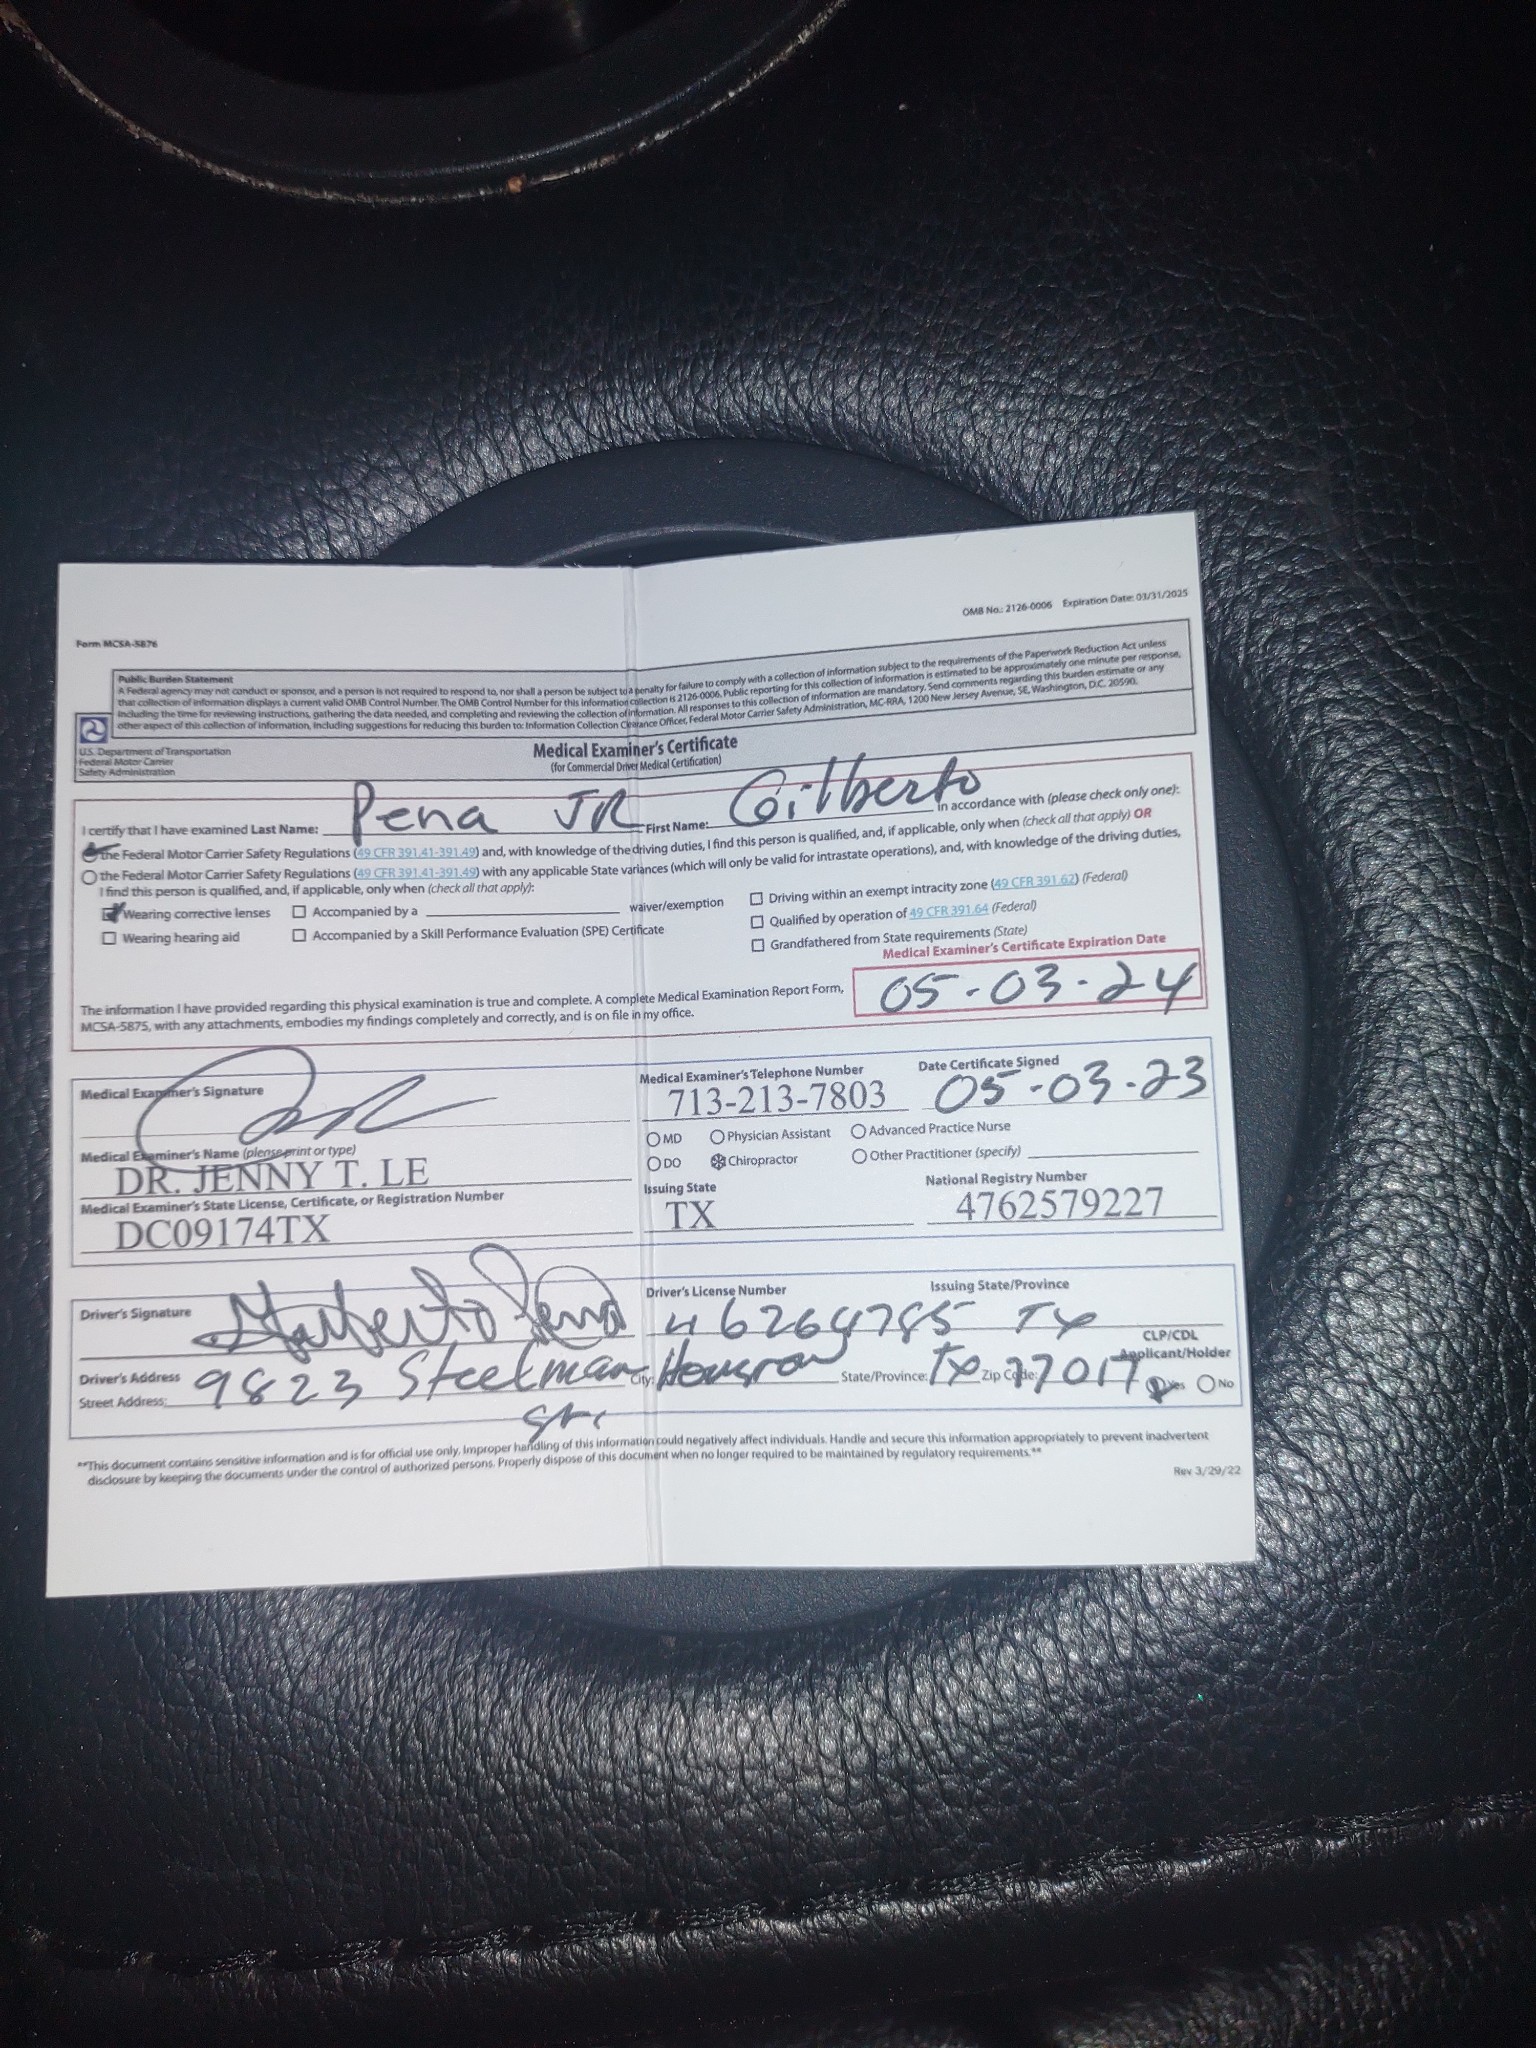 OMB No.: 2126-0006 Expiration Date: 03/31/2025
Form MCSA-5876
Public Burden Statement
A Federal agency may not conduct or sponsor, and a person is not required to respond to, nor shall a person be subject to a penalty for failure to comply with a collection of information subject to the requirements of the Paperwork Reduction Act unless
that collection of information displays a current valid OMB Control Number. The OMB Control Number for this information collection is 2126-0006. Public reporting for this collection of information is estimated to be approximately one minute per response,
including the time for reviewing instructions, gathering the data needed, and completing and reviewing the collection of information. All responses to this collection of information are mandatory. Send comments regarding this burden estimate or any
other aspect of this collection of information, including suggestions for reducing this burden to: Information Collection Clearance Officer, Federal Motor Carrier Safety Administration, MC-RRA, 1200 New Jersey Avenue, SE, Washington, D.C. 20590.
U.S. Department of Transportation
Federal Motor Carrier
Safety Administration
Medical Examiner's Certificate
(for Commercial Driver Medical Certification)
I certify that I have examined Last Name: Pena JR First Name: Gilberto in accordance with (please check only one):
the Federal Motor Carrier Safety Regulations (49 CFR 391.41-391.49) and, with knowledge of the driving duties, I find this person is qualified, and, if applicable, only when (check all that apply) OR
the Federal Motor Carrier Safety Regulations (49 CFR 391.41-391.49) with any applicable State variances (which will only be valid for intrastate operations), and, with knowledge of the driving duties,
I find this person is qualified, and, if applicable, only when (check all that apply):
Wearing corrective lenses Accompanied by a waiver/exemption Driving within an exempt intracity zone (49 CFR 391.62) (Federal)
Wearing hearing aid Accompanied by a Skill Performance Evaluation (SPE) Certificate Qualified by operation of 49 CFR 391.64 (Federal)
Grandfathered from State requirements (State)
Medical Examiner's Certificate Expiration Date
05-03-24
The information I have provided regarding this physical examination is true and complete. A complete Medical Examination Report Form,
MCSA-5875, with any attachments, embodies my findings completely and correctly, and is on file in my office.
Medical Examiner's Signature Medical Examiner's Telephone Number Date Certificate Signed
713-213-7803 05-03-23
MD Physician Assistant Advanced Practice Nurse
DO Chiropractor Other Practitioner (specify)
Medical Examiner's Name (please print or type)
DR. JENNY T. LE
Medical Examiner's State License, Certificate, or Registration Number Issuing State National Registry Number
DC09174TX TX 4762579227
Driver's Signature Gilberto Pena Driver's License Number Issuing State/Province
46264785 TX
CLP/CDL
Applicant/Holder
Yes No
Driver's Address
Street Address: 9823 Steelman City: Houston State/Province: TX Zip Code: 77017
**This document contains sensitive information and is for official use only. Improper handling of this information could negatively affect individuals. Handle and secure this information appropriately to prevent inadvertent
disclosure by keeping the documents under the control of authorized persons. Properly dispose of this document when no longer required to be maintained by regulatory requirements.**
Rev 3/29/22